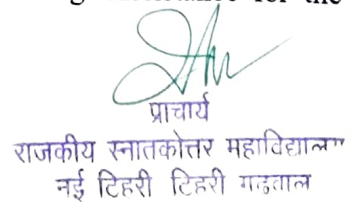 for the
प्राचार्य
राजकीय स्नातकोत्तर महाविद्यालय
नई टिहरी टिहरी गढ़वाल